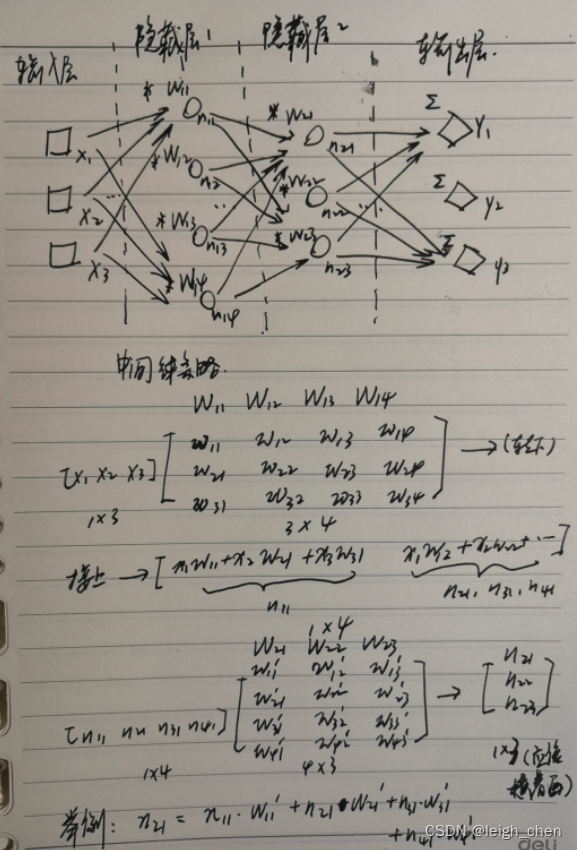 隐藏层1 隐藏层2 输出层
输入层
* W11 n11 * W21 n21 Σ y1
x1
* W12 n2 * W22 n22 Σ y2
x2
* W13 n13 * W23 n23 Σ y3
x3
* W14 n14
中间线忽略.
W11 W12 W13 W14
[x1 x2 x3] [ w11 w12 w13 w14
w21 w22 w23 w24
w31 w32 w33 w34 ] → (转下)
1×3
3×4
接上 → [ x1w11+x2w21+x3w31 x1w12+x2w22+… ]
n11 n21, n31, n41
1×4
W21 W22 W23
[n11 n21 n31 n41] [ w11' w12' w13'
w21' w22' w23'
w31' w32' w33'
w41' w42' w43' ] → [ n21
n22
n23 ]
1×4
4×3
1×3 (应该横着画)
举例: n21 = n11·w11' + n21·w21' + n31·w31'
+ n41·w41'
CSDN @leigh_chen
deli